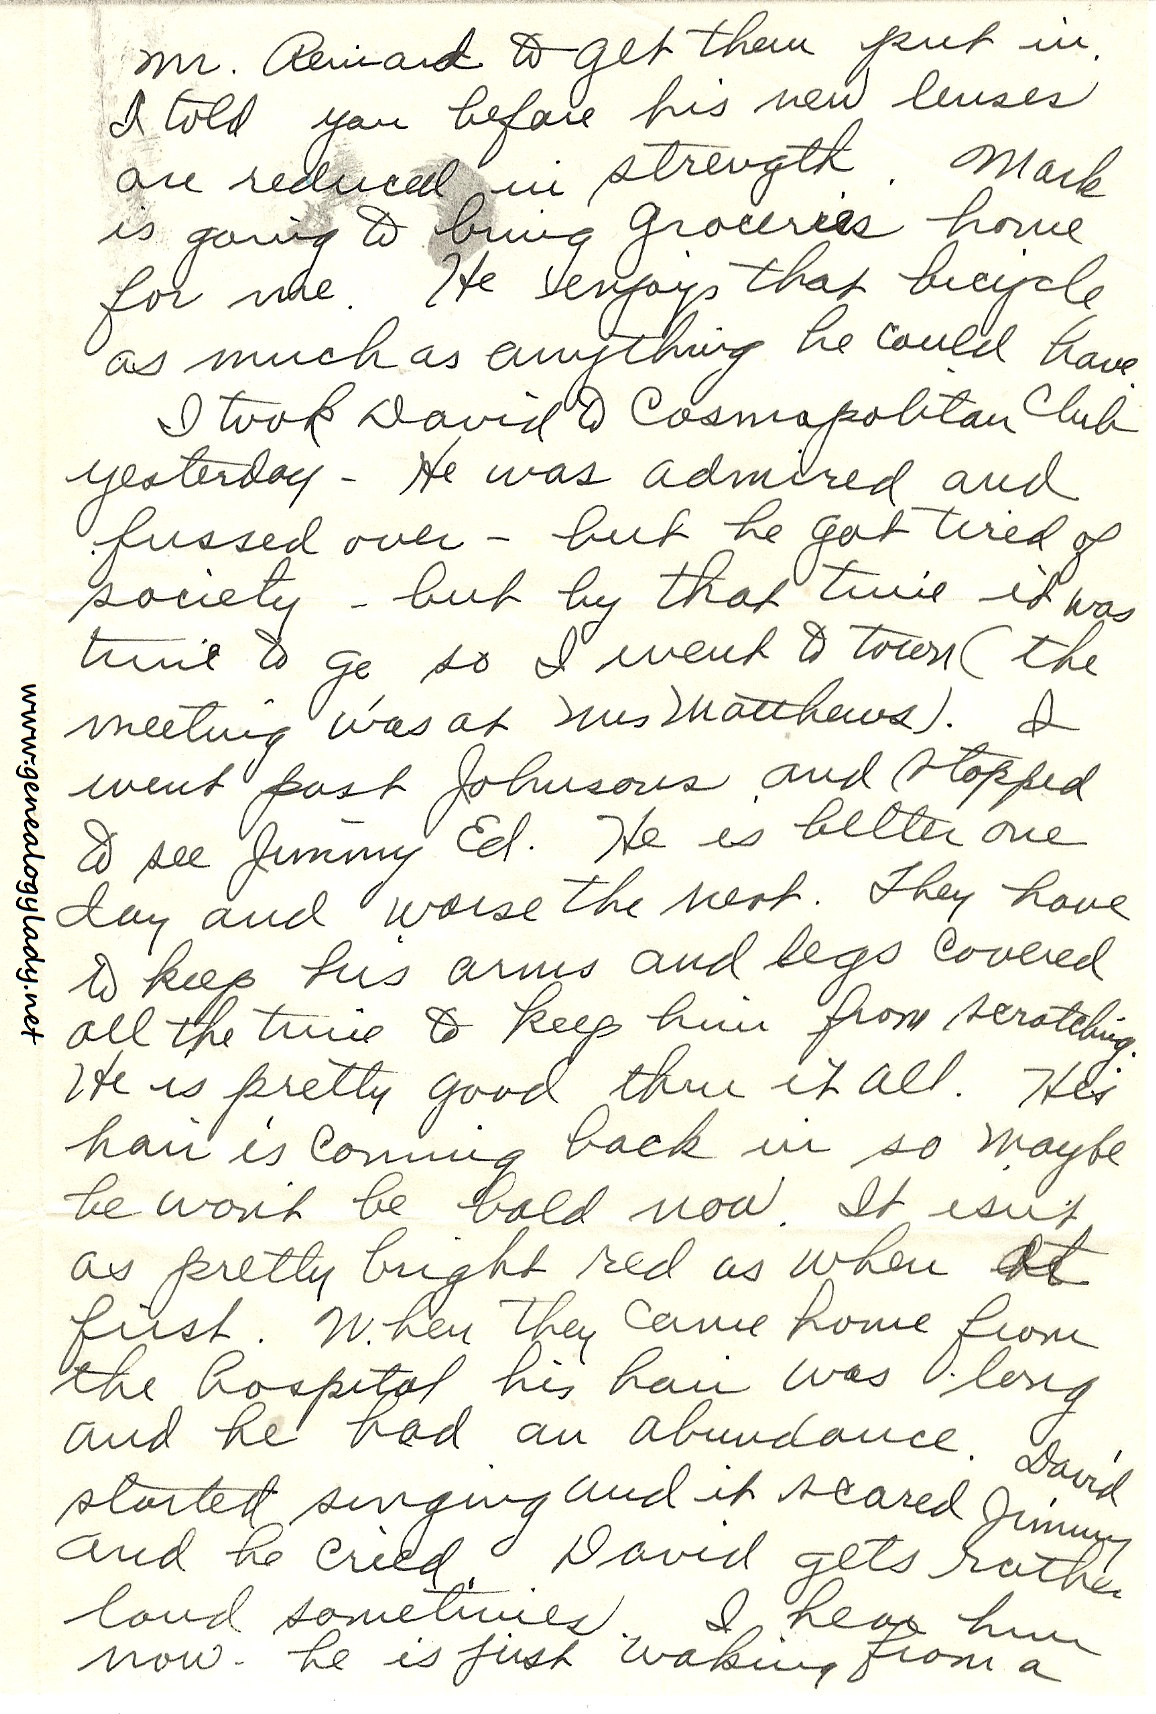 Mr. Reinard to get them put in.
I told you before his new lenses
are reduced in strength. Mark
is going to bring groceries home
for me. He enjoys that bicycle
as much as anything he could have.
I took David to Cosmopolitan Club
yesterday - He was admired and
fussed over - but he got tired of
society - but by that time it was
time to go so I went to town (the
meeting was at Mrs Matthews). I
went past Johnsons and stopped
to see Jimmy Ed. He is better one
day and worse the next. They have
to keep his arms and legs covered
all the time to keep him from scratching.
He is pretty good thru it all. His
hair is coming back in so maybe
he won't be bald now. It isn't
as pretty bright red as when at
first. When they came home from
the hospital his hair was long
and he had an abundance. David
started singing and it scared Jimmy
and he cried. David gets rather
loud sometimes. I hear him
now - he is just waking from a
www.genealogylady.net